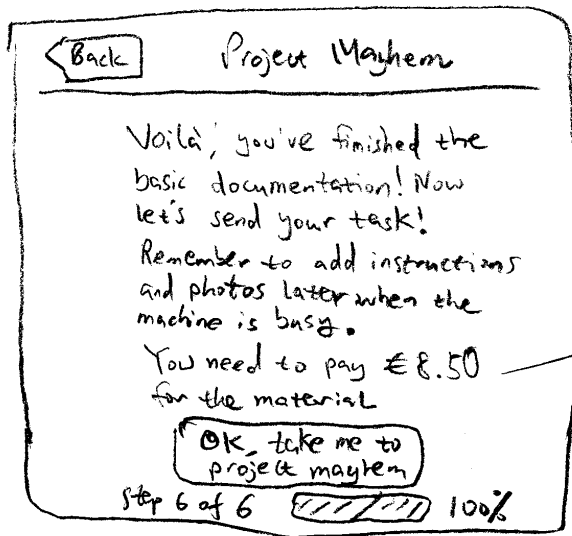 Back
Project Mayhem
Voilà, you've finished the
basic documentation! Now
let's send your task!
Remember to add instructions
and photos later when the
machine is busy.
You need to pay €8.50
for the material
OK, take me to
project mayhem
Step 6 of 6 100%